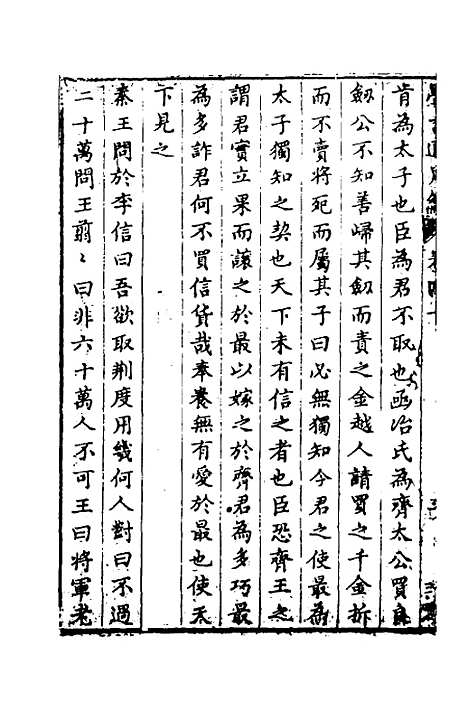 肯為太子也臣為君不取也函冶氏為齊太公買良
劒公不知善歸其劒而責之金越人請買之千金折
而不賣將死而屬其子曰必無獨知今君之使最為
太子獨知之契也天下未有信之者也臣恐齊王之
謂君實立果而讓之於最以嫁之於齊君為多巧最
為多詐君何不買信貨哉奉養無有愛於最也使天
下見之
秦王問於李信曰吾欲取荆度用幾何人對曰不過
二十萬問王翦〻曰非六十萬人不可王曰將軍老